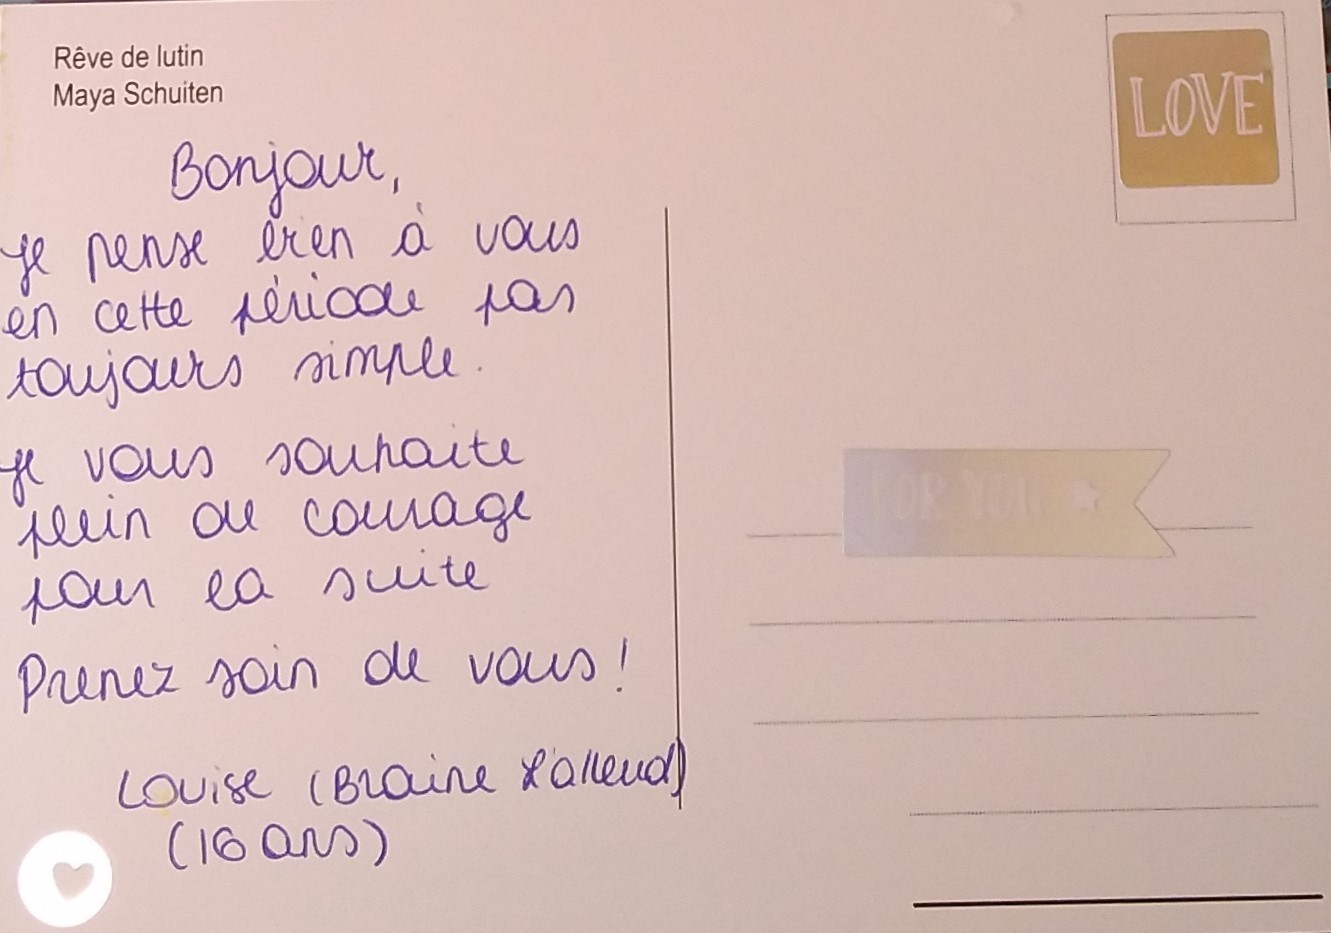 Rêve de lutin
Maya Schuiten
LOVE
Bonjour,
je pense bien à vous
en cette période pas
toujours simple.
je vous souhaite
plein de courage
pour la suite
Prenez soin de vous !
Louise (Braine l'alleud)
(16 ans)
FOR YOU